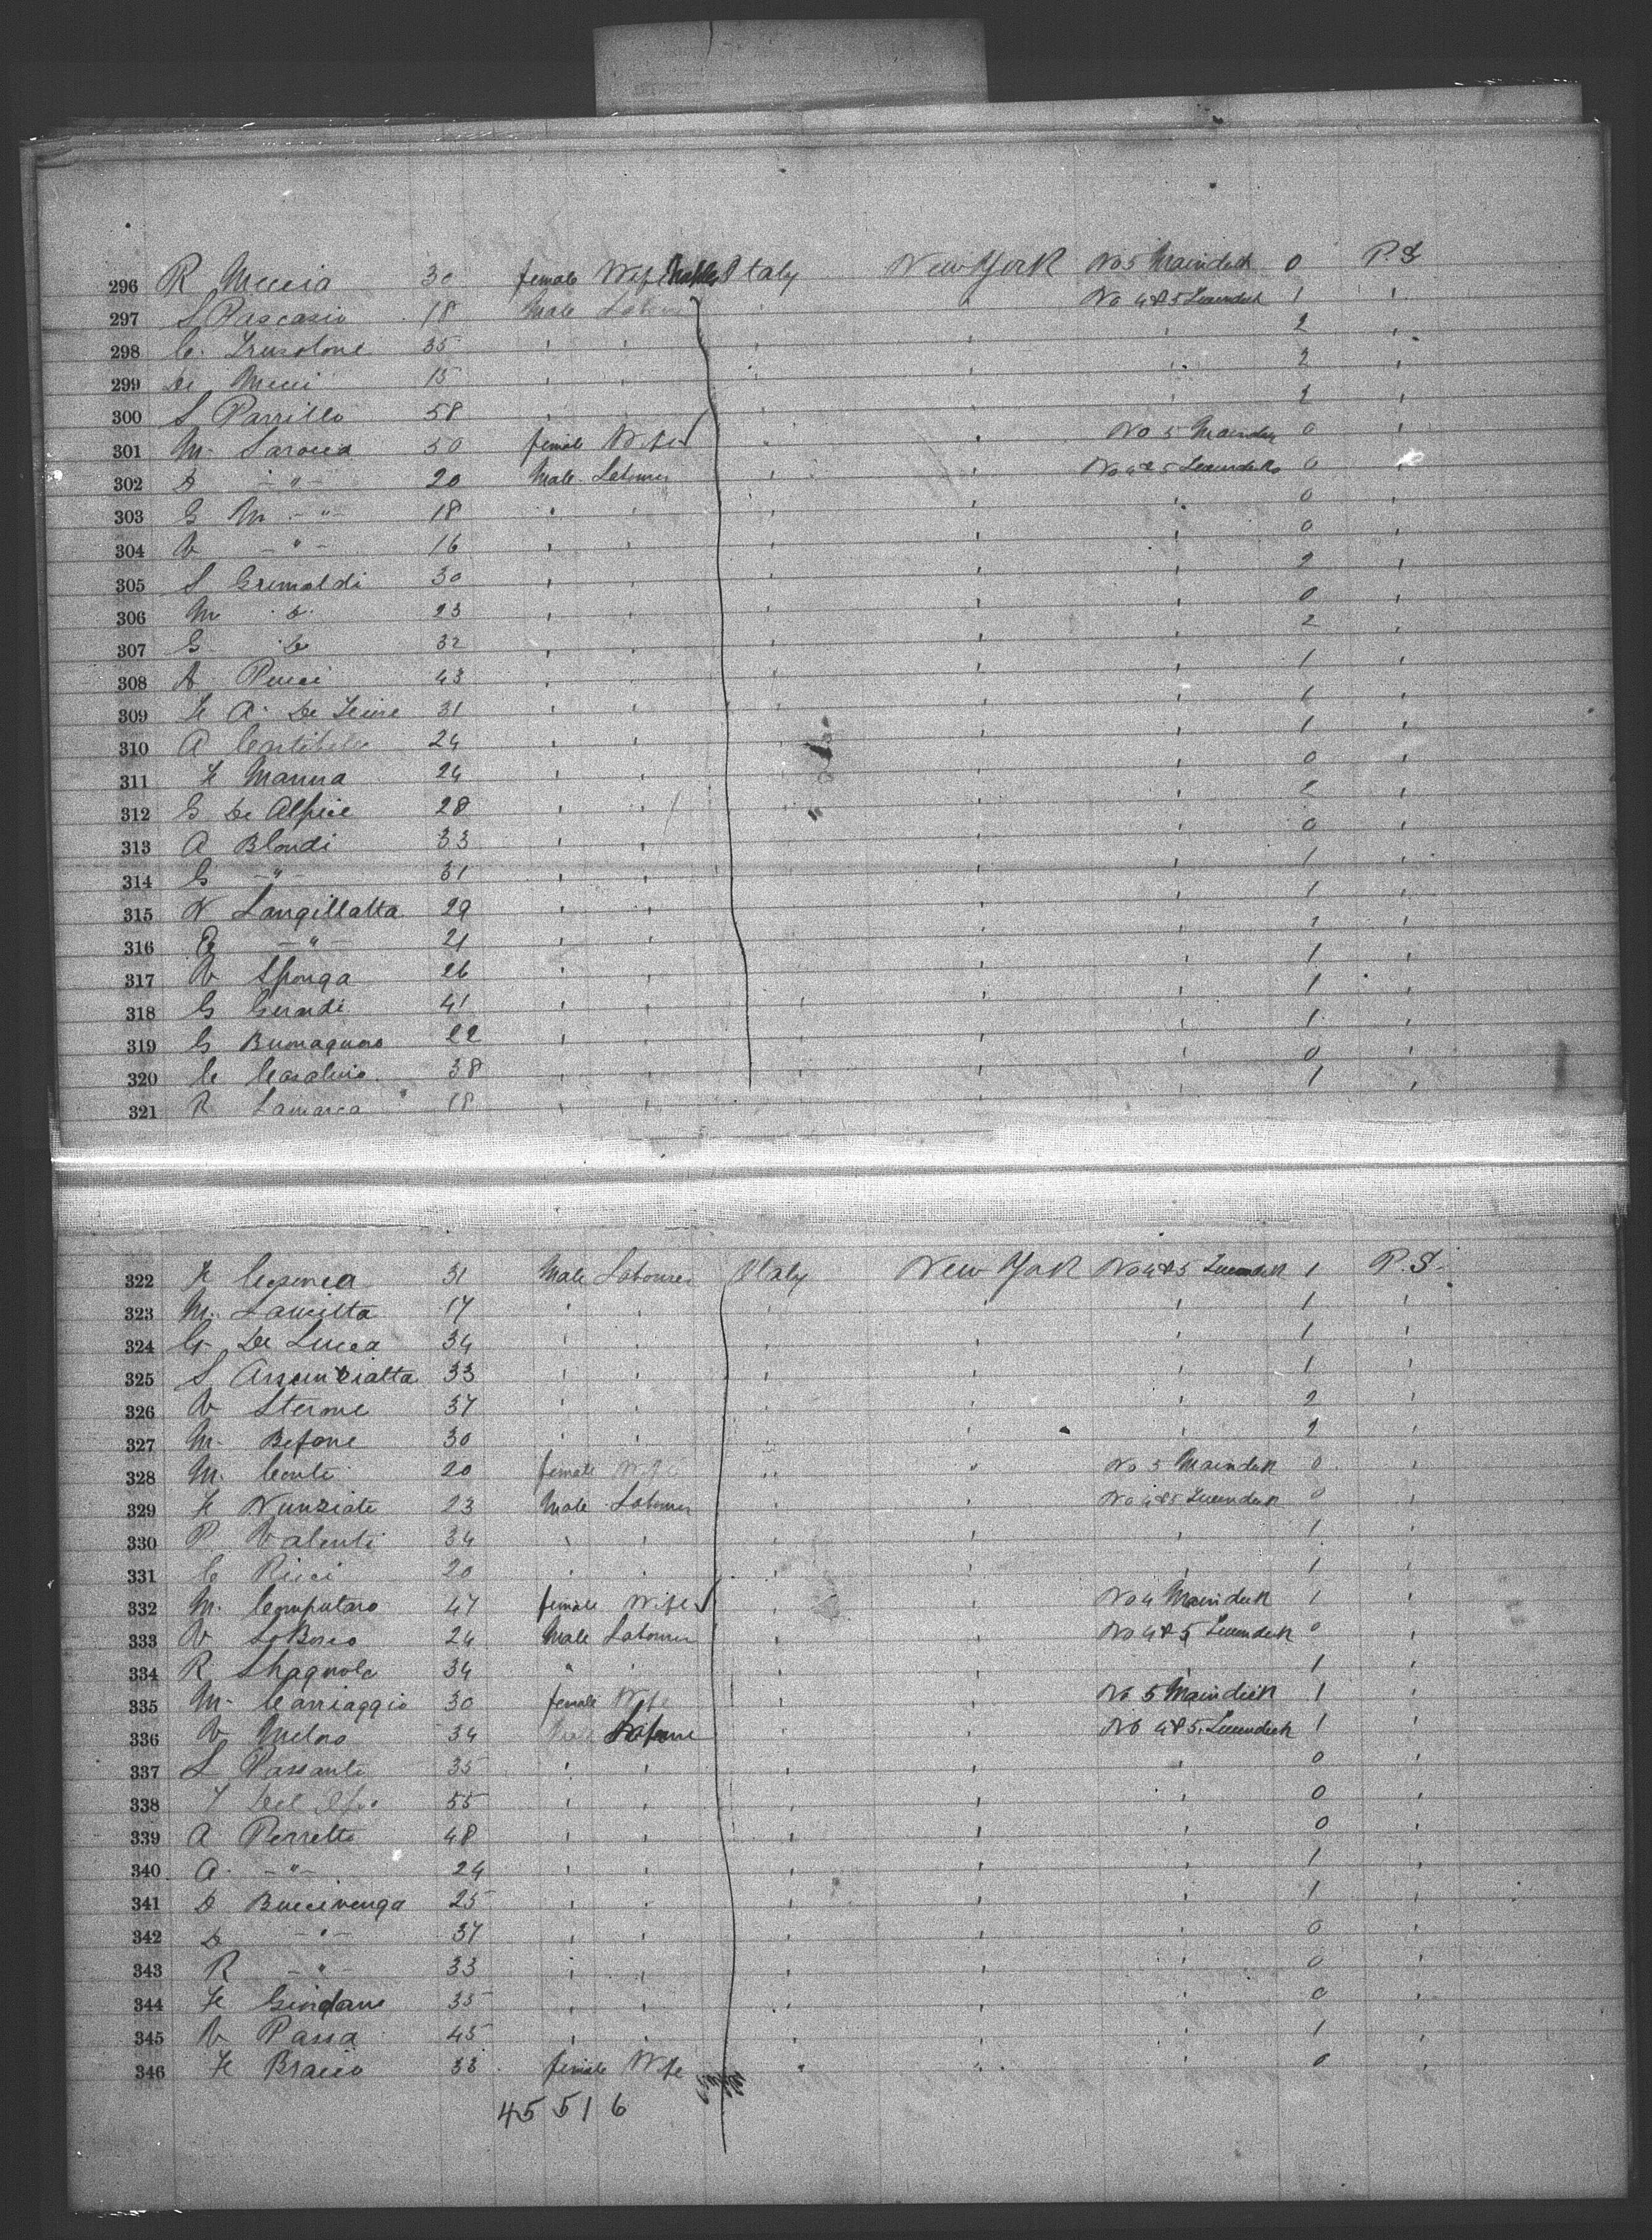 296 R Meccia 30 female Wife Italy New York No 5 Maindeck 0 P.S
297 S Pascasio 18 Male Labourer ' ' No 4 & 5 1 '
298 35 ' ' ' ' ' 2 '
299 De Meii 15 ' ' ' ' ' 2 '
300 S Parrillo 58 ' ' ' ' ' 2 '
301 M. Larocca 50 female Wife ' ' No 5 Maindeck 0 '
302 D - " - 20 Male Labourer ' ' No 4 & 5 0 '
303 G M - " - 18 ' ' ' ' ' 0 '
304 V - " - 16 ' ' ' ' ' 0 '
305 S Grimaldi 30 ' ' ' ' ' 2 '
306 M do 23 ' ' ' ' ' 0 '
307 G do 32 ' ' ' ' ' 2 '
308 A Pucci 43 ' ' ' ' ' 1 '
309 A. De 31 ' ' ' ' ' 1 '
310 A 24 ' ' ' ' ' 1 '
311 F Manna 24 ' ' ' ' ' 0 '
312 G De Alfice 28 ' ' ' ' ' 2 '
313 A Blondi 33 ' ' ' ' ' 0 '
314 G - " - 31 ' ' ' ' ' 1 '
315 N Langillatta 29 ' ' ' ' ' 1 '
316 - " - 21 ' ' ' ' ' 1 '
317 V Sponga 26 ' ' ' ' ' 1 '
318 G 41 ' ' ' ' ' 1 '
319 G 22 ' ' ' ' ' 1 '
320 C Casaluio 38 ' ' ' ' ' 0 '
321 R Lamarca 18 ' ' ' ' ' 1 '
322 F 31 Male Labourer Italy New York No 4 & 5 1 P.S.
323 M. 17 ' ' ' ' ' 1 '
324 G. De Lucca 34 ' ' ' ' ' 1 '
325 S Assunziatta 33 ' ' ' ' ' 1 '
326 V Sterone 37 ' ' ' ' ' 2 '
327 M. Befane 30 ' ' ' ' ' 2 '
328 M. Conti 20 female Wife ' ' No 5 Maindeck 0 '
329 F Nunziate 23 Male Labourer ' ' No 4 & 5 0 '
330 P. Valenti 34 ' ' ' ' ' 1 '
331 C Ricci 20 ' ' ' ' ' 1 '
332 M. Computaro 47 female Wife ' ' No 4 Maindeck 1 '
333 V LoBosco 24 Male Labourer ' ' No 4 & 5 0 '
334 R. Shagnola 34 " ' ' ' ' 1 '
335 M. Carriaggio 30 female Wife ' ' No 5 Maindeck 1 '
336 V Melno 34 Male Labourer ' ' No 4 & 5 1 '
337 L Passanti 35 ' ' ' ' ' 0 '
338 Del 55 ' ' ' ' ' 0 '
339 A Perretti 48 ' ' ' ' ' 0 '
340 A. - " - 24 ' ' ' ' ' 1 '
341 D Buccivenga 25 ' ' ' ' ' 1 '
342 D - " - 37 ' ' ' ' ' 0 '
343 R - " - 33 ' ' ' ' ' 0 '
344 F Giordane 35 ' ' ' ' ' 0 '
345 V Passa 45 ' ' ' ' ' 1 '
346 F Bracco 33 female Wife ' ' ' 0 '
45516